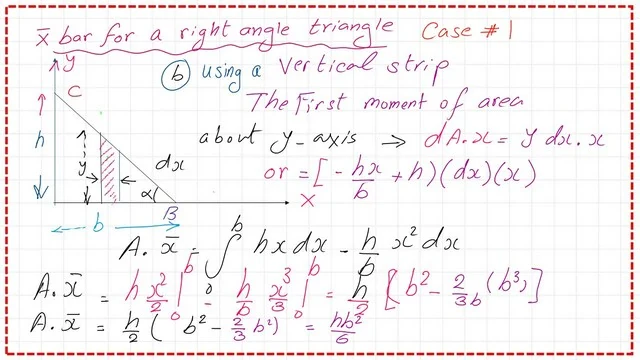 x̄ bar for a right angle triangle Case #1
y
C
(b) using a Vertical strip
The First moment of area
h
y
dx
α
B
x
b
about y-axis ⇒ dA.x = y dx.x
or = [-hx/b + h)(dx)(x)
A.x̄ = ∫₀ᵇ hx dx - h/b x² dx
A.x̄ = h x²/2 |₀ᵇ - h/b x³/3 |₀ᵇ = h/2 [b² - 2/3b (b³)]
A.x̄ = h/2 ( b² - 2/3 b²) = hb²/6